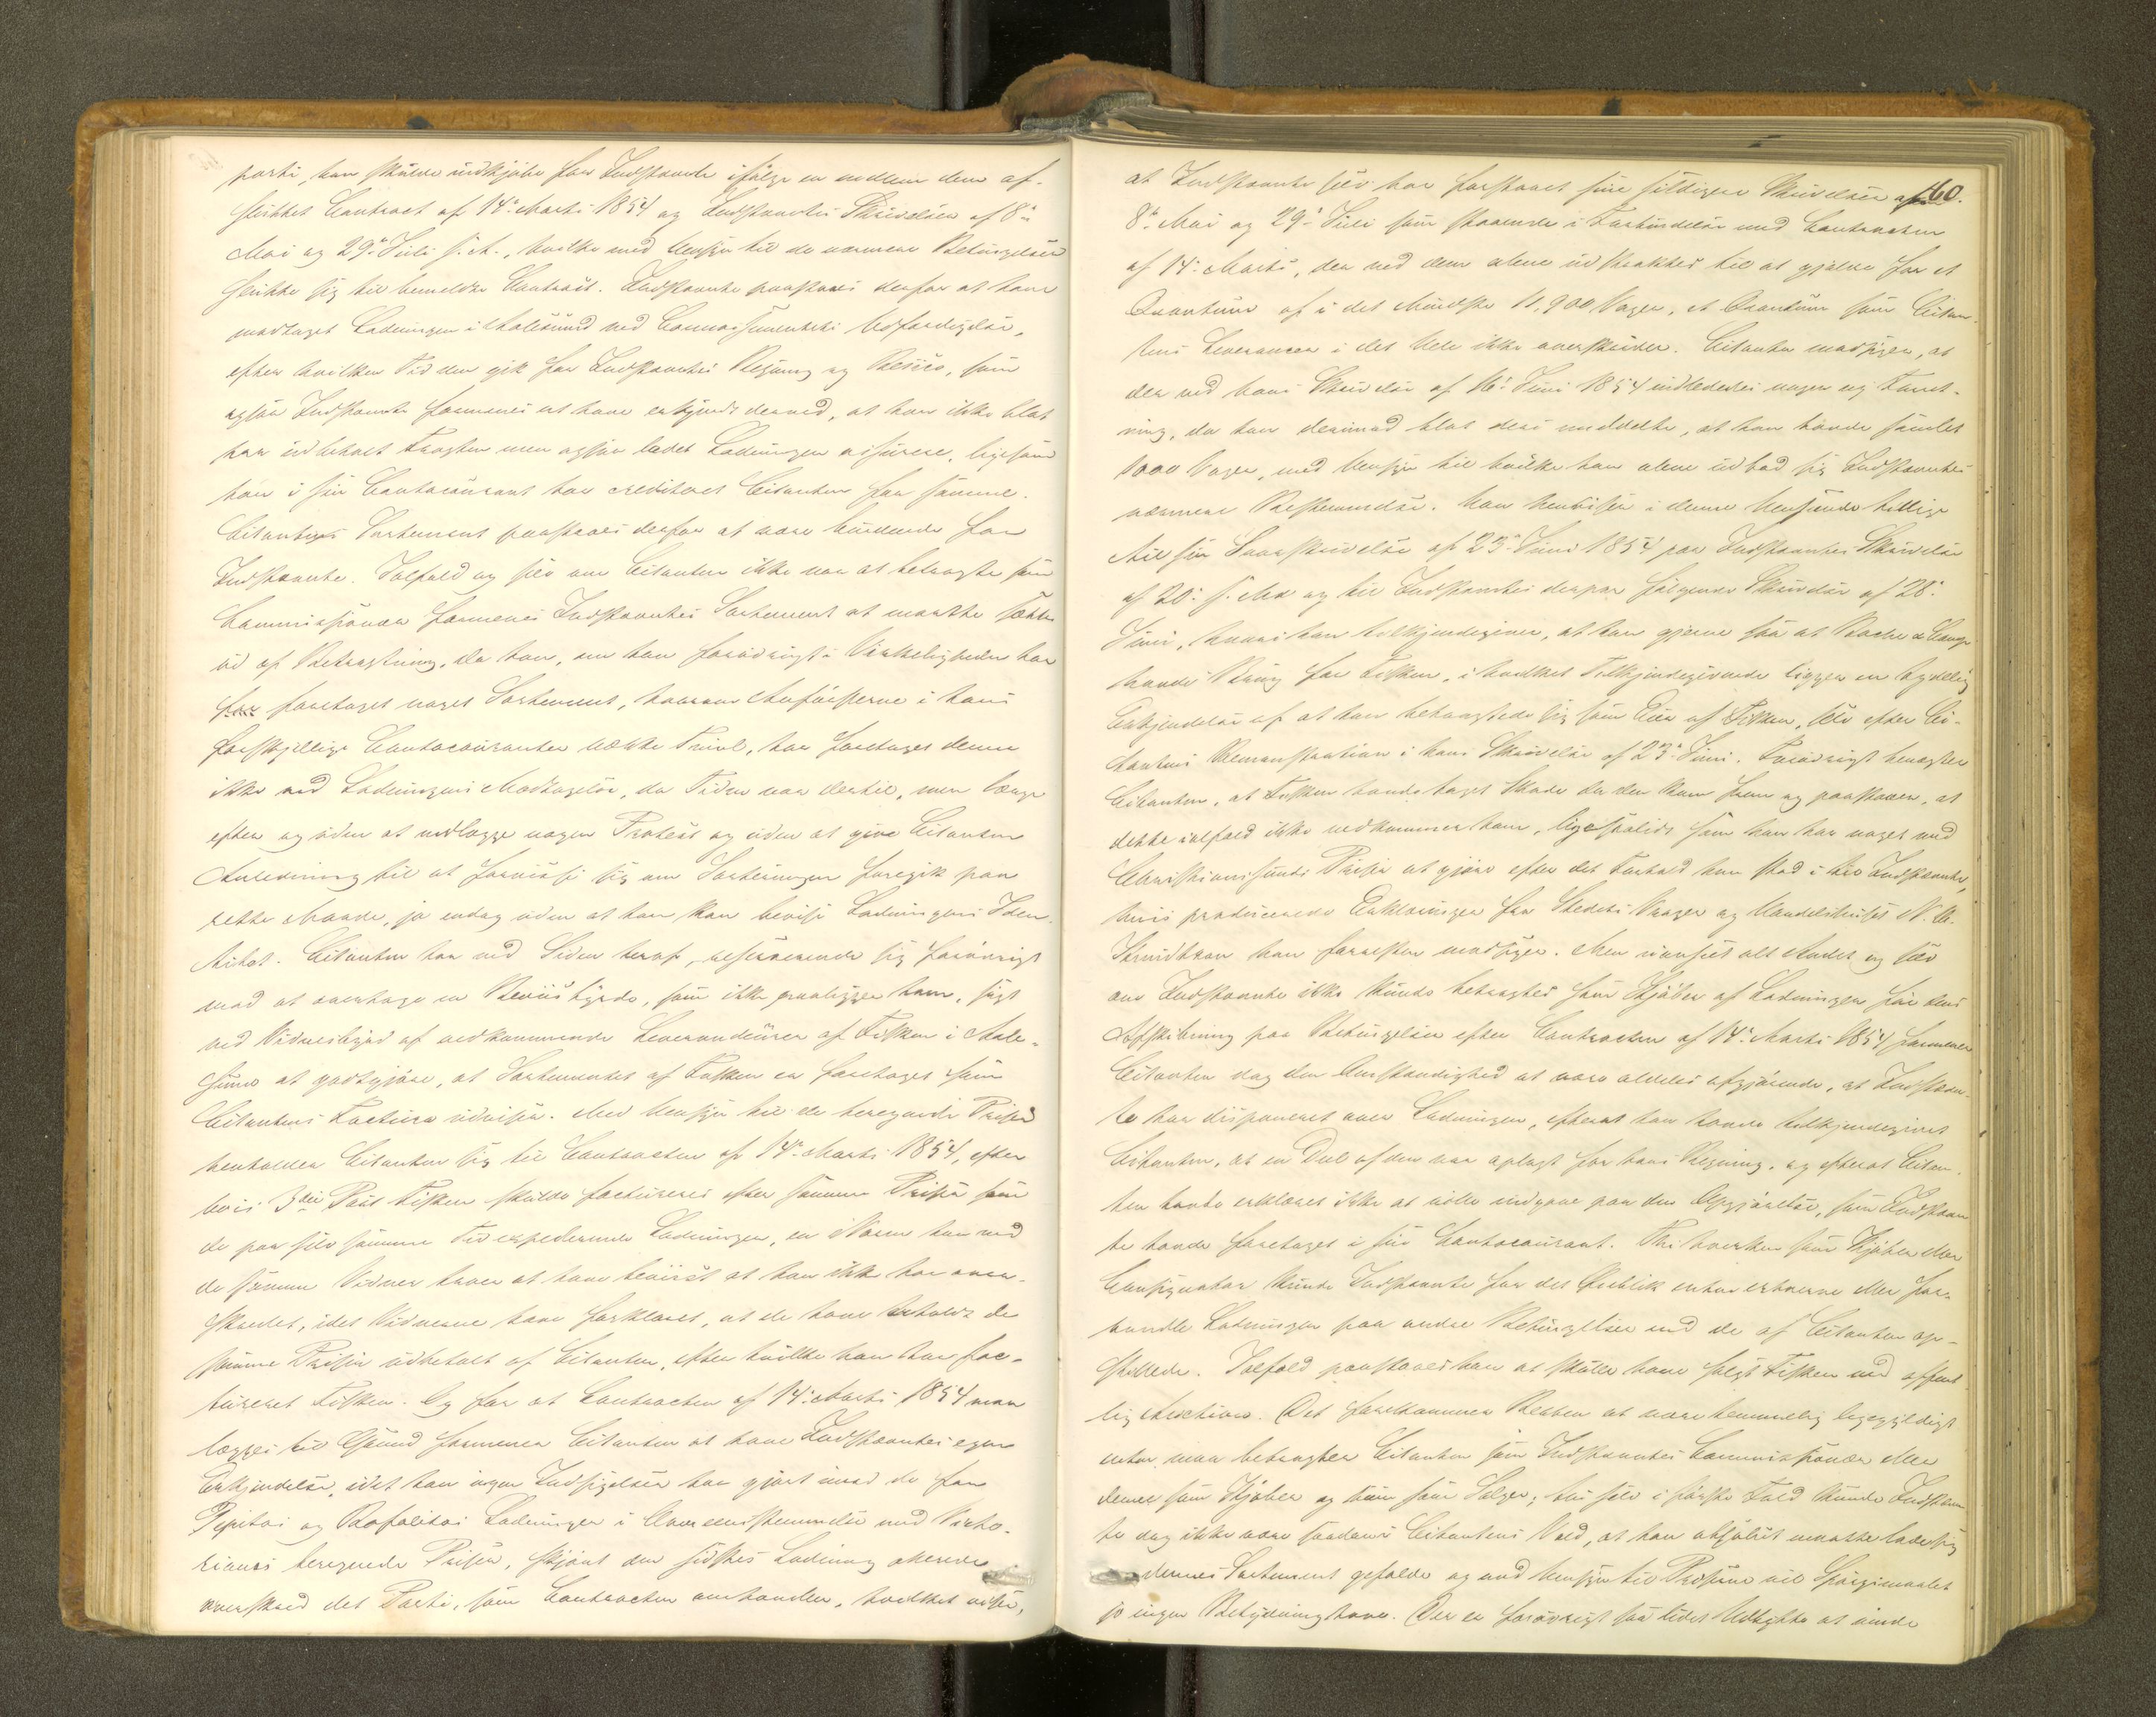 parti, han skulde indkjøbe for Indstævnte ifølge en mellem dem af-
sluttet Contract af 14de Marts 1854 og Indstævntes Skrivelser af 8de
Mai og 29de Juli s. A., hvilke med Hensyn til de nærmere Betingelser
slutte sig til bemeldte Contract. Indstævnte paastaaes derfor at have
modtaget Ladningen i Aalesund ved Connossementets Udfærdigelse,
efter hvilken Tid den gik for Indstævntes Regning og Risico, som
ogsaa Indstævnte formenes at have erkjendt derved, at han ikke blot
har udbetalt Fragten men ogsaa ladet Ladningen assurere, ligesom
han i sin Contocourant har crediteret Citanten for samme.
Citantens Sortement paastaaes derfor at være bindende for
Indstævnte. Ialfald og selv om Citanten ikke var at betragte som
Commissionær formenes Indstævntes Sortement at maatte sættes
ud af Betragtning, da han, om han forøvrigt i Virkeligheden har
foretaget noget Sortement, hvorom Anførslerne i hans
forskjellige Contocouranter vække Tvivl, har foretaget denne
ikke ved Ladningens Modtagelse, da Tiden var dertil, men længe
efter og uden at nedlægge nogen Protest og uden at give Citanten
Anledning til at forvisse sig om Sorteringen foregik paa
rette Maade, ja endog uden at han kan bevise Ladningens Iden-
titet. Citanten har ved Siden heraf, reserverende sig forøvrigt
mod at overtage en Beviisbyrde, som ikke paaligger ham, søgt
ved Vidnesbyrd af vedkommende Leverandeurer af Fisken i Aale-
sund at godtgjøre, at Sortementet af Fisken er foretaget som
Citantens Factura udviser. Med Hensyn til de beregnede Priser
henholder Citanten sig til Contracten af 14de Marts 1854, efter
hvis 3die Post Fisken skulde factureres efter samme Priser som
de paa selv samme Tid expederende Ladninger, en Norm han med
de samme Vidner haver at have beviist at han ikke har over-
skredet, idet Vidnerne have forklaret, at de have erholdt de
samme Priser udbetalt af Citanten, efter hvilke han har fac-
tureret Fisken. Og for at Contracten af 14de Marts 1854 maa
lægges til Grund formener Citanten at have Indstævntes egen
Erkjendelse, idet han ingen Indsigelser har gjort imod de for
Pepitas og Rafalitas Ladninger i Overeensstemmelse med Victo-
rianas beregnede Priser, skjønt den sidstes Ladning allerede
overskred det Parti, som Contracten omhandler, hvilket viser,
160.
at Indstævnte selv har forstaaet sine sildigere Skrivelser af
8de Mai og 29de Juli som staaende i Forbindelse med Contracten
af 14de Marts, der ved dem alene udstraktes til at gjælde for et
Quantum af i det Mindste 11,900 Voger, et Quantum som Citan-
tens Leverancer i det Hele ikke overskrider. Citanten modsiger, at
der ved hans Skrivelse af 16de Juni 1854 indlededes nogen ny Forret-
ning, da han derimod blot deri meddelte, at han havde samlet
1000 Voger, med Hensyn til hvilke han alene udbad sig Indstævntes
nærmere Bestemmelse. Han henviser i denne Henseende tillige
til sin Svarskrivelse af 23de Juni 1854 paa Indstævntes Skrivelse
af 20de s. M. og til Indstævntes derpaa følgende Skrivelse af 28de
Juni, hvori han tilkjendegiver, at han gjerne saa at Roche & Comp.
havde Brug for Fisken, i hvilket Tilkjendegivende ligger en tydelig
Erkjendelse af at han betragtede sig som Eier af Fisken, selv efter Ci-
tantens Remonstration i hans Skrivelse af 23de Juni. Forøvrigt benægter
Citanten, at Fisken havde taget Skade da den kom frem og paastaaer, at
dette ialfald ikke vedkommer ham, ligesaalidt som han har noget med
Christianssunds Priser at gjøre efter det Forhold han stod i til Indstævnte,
hvis producerede Erklæringer fra Stedets Vrager og Handelshuset N. H.
Knudtzon han forresten modsiger. Men uanseet alt Andet og selv
om Indstævnte ikke kunde betragtes som Kjøber af Ladningen før dens
Afskibning paa Betingelser efter Contracten af 14de Marts 1854 formener
Citanten dog den Omstændighed at være aldeles afgjørende, at Indstævn-
te har disponeret over Ladningen, efterat han havde tilkjendegivet
Citanten, at en Deel af den var oplagt for hans Regning, og efterat Citan-
ten havde erklæret ikke at ville indgaae paa den Opgjørelse, som Indstævn-
te havde foretaget i sin Contocourant. Thi hverken som Kjøber eller
Consignatar kunde Indstævnte for det Øieblik enten erhverve eller for-
handle Ladningen paa andre Betingelser end de af Citanten op-
stillede. Ialfald paastaaes han at skulle have solgt Fisken ved offent-
lig Auction. Det forekommer Retten at være temmelig ligegyldigt
enten man betragter Citanten som Indstævntes Commissionær eller
denne som Kjøber og hiin som Sælger; thi selv i første Fald kunde Indstævn-
te dog ikke være saadan i Citantens Vold, at han absolut maatte lade sig
dennes Sortement gefalde og med Hensyn til Priserne vil Spørgsmaalet
jo ingen Betydning have. Der er forøvrigt saa lidet Udbytte at vinde